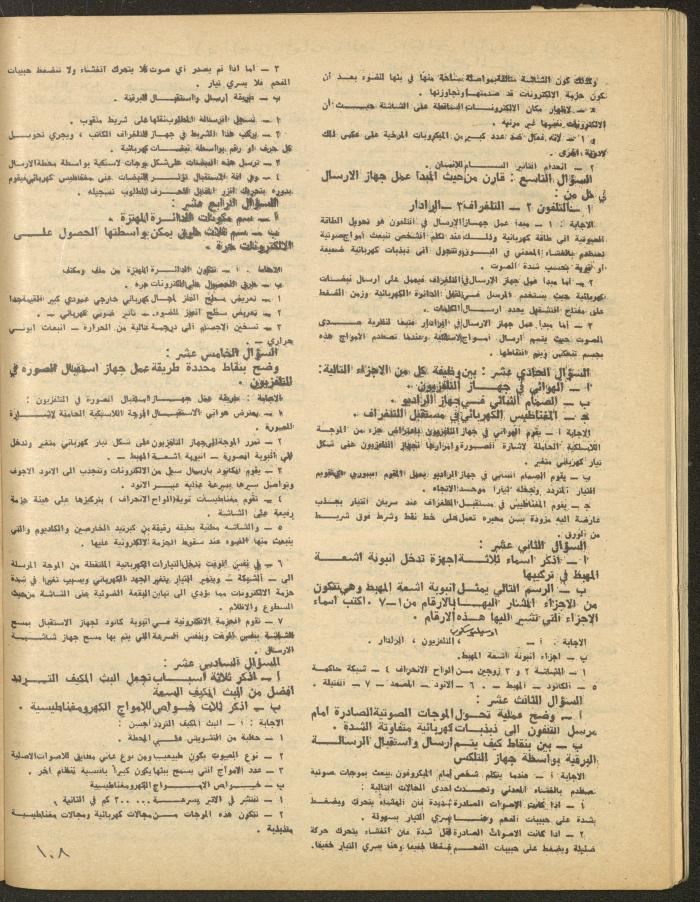 وكذلك كون الشاشة متألقة بمواصلة ساطعة منها في بثها للضوء بعد أن
تكون حزمة الالكترونات قد صدمتها وتجاوزتها .
* ـ لاظهار مكان الالكترونات الساقطة على الشاشة حيث أن
الالكترونات نفسها غير مرئية .
و ١ ـ لانه فعال ضد عدد كبير من الميكروبات المرضية على عكس تلك
لادوية اخرى .
٢ ـ انعدام التأثير السام للانسان .
السؤال التاسع : قارن من حيث المبدأ عمل جهاز الارسال
في كل من :
١ ـ التلفون ٢ ـ التلغراف ٣ ـ الرادار
الاجابة : ١ ـ مبدأ عمل جهاز الارسال في التلفون هو تحويل الطاقة
الصوتية الى طاقة كهربائية وذلك عند تكلم الشخص تنبعث امواج صوتية
تصطدم بالغشاء المعدني في البوق وتتحول الى ذبذبات كهربائية ضعيفة
او قوية بحسب شدة الصوت .
٢ ـ أما مبدأ عمل جهاز الارسال في التلغراف فيعمل على ارسال نبضات
كهربائية حيث يستخدم المرسل في لقفل الدائرة الكهربائية وزمن الضغط
على مفتاح التشغيل يحدد ارسال الكلمات .
٣ ـ اما مبدأ عمل جهاز الارسال في الرادار فتبعا لنظرية صدى
الصوت حيث يتم ارسال امواج لاسلكية وعندما تصطدم الامواج هذه
بجسم تنعكس ويتم التقاطها .
السؤال الحادي عشر : بين وظيفة كل من الاجزاء التالية :
أ ـ الهوائي في جهاز التلفزيون .
ب ـ الصمام الثنائي في جهاز الراديو .
جـ ـ المغناطيس الكهربائي في مستقبل التلغراف .
الاجابة أ ـ يقوم الهوائي في جهاز التلفزيون باعتراض جزء من الموجة
اللاسلكية الحاملة لاشارة الصورة وامرارها لجهاز التلفزيون على شكل
تيار كهربائي متغير .
ب ـ يقوم الصمام الثنائي في جهاز الراديو بعمل المقوم اي تقويم
التيار المتردد وتجعله تيارا موحد الاتجاه .
جـ ـ يقوم المغناطيس في مستقبل التلغراف عند سريان التيار بجذب
عارضة اليه مزودة بسن محبره تعمل على خط نقط وشرط فوق شريط
من الورق .
السؤال الثاني عشر :
أ ـ اذكر اسماء ثلاثة اجهزة تدخل انبوبة اشعة
المهبط في تركيبها
ب ـ الرسم التالي يمثل انبوبة اشعة المهبط وهي تتكون
من الاجزاء المشار اليها بالارقام من ١ ـ ٧ . اكتب اسماء
الاجزاء التي تشير اليها هذه الارقام .
الاجابة : أ ـ اوسيلوسكوب التلفزيون ، الرادار .
ب ـ اجزاء انبوبة اشعة المهبط .
١ ـ الشاشة ٢ و ٣ زوجين من الواح الانحراف ٤ ـ شبكة حاكمة
٥ ـ الكاثود ـ المهبط ـ . ٦ ـ الانود ـ المصعد ـ ٧ ـ الفتيلة .
السؤال الثالث عشر :
أ ـ وضح عملية تحول الموجات الصوتية الصادرة امام
مرسل التلفون الى ذبذبات كهربائية متفاوتة الشدة .
ب ـ بين بنقاط كيف يتم ارسال واستقبال الرسالة
البرقية بواسطة جهاز التلكس
الاجابة أ ـ عندما يتكلم شخص امام الميكروفون يبعث بموجات صوتية
تصطدم بالغشاء المعدني وتحدث احدى الحالات التالية :
١ ـ اذا كانت الاصوات الصادرة شديدة فان الغشاء يتحرك ويضغط
بشدة على حبيبات الفحم وهنا يسري التيار بسهولة .
٢ ـ اذا كانت الاصوات الصادرة اقل شدة فان الغشاء يتحرك حركة
ضئيلة ويضغط على حبيبات الفحم ضغطا خفيفا وهنا يسري التيار خفيفا .
٣ ـ اما اذا لم يصدر اي صوت فلا يتحرك الغشاء ولا تنضغط حبيبات
الفحم فلا يسري تيار .
ب ـ طريقة ارسال واستقبال البرقية .
١ ـ تسجل الرسالة المطلوب نقلها على شريط مثقوب .
٢ ـ يركب هذا الشريط في جهاز التلغراف الكاتب ، ويجري تحويل
كل حرف او رقم بواسطة نبضات كهربائية .
٣ ـ ترسل هذه النبضات على شكل موجات لاسلكية بواسطة محطة الارسال
٤ ـ وفي آلة الاستقبال تؤثر النبضات على مغناطيس كهربائي فيقوم
بدوره بتحريك الزر المقابل للحرف المطلوب تسجيله .
السؤال الرابع عشر :
أ ـ سم مكونات الدائرة المهتزة .
ب ـ سم ثلاث طرق يمكن بواسطتها الحصول على
الالكترونات حرة .
الاجابة . أ ـ تتكون الدائرة المهتزة من ملف ومكثف
ب ـ طرق الحصول على الكترونات حرة .
١ ـ تعريض سطح الفلز لمجال كهربائي خارجي عمودي كبير القيمة جدا
٢ ـ تعريض سطح الفلز للضوء ـ تأثير ضوئي كهربائي ـ .
٣ ـ تسخين الاجسام الى درجة عالية من الحرارة ـ انبعاث ايوني
حراري ـ .
السؤال الخامس عشر :
وضح بنقاط محددة طريقة عمل جهاز استقبال الصورة في
التلفزيون .
الاجابة : طريقة عمل جهاز استقبال الصورة في التلفزيون :
١ ـ يعترض هوائي الاستقبال الموجة اللاسلكية الحاملة لاشارة
الصورة .
٢ ـ تمرر الموجة الى جهاز التلفزيون على شكل تيار كهربائي متغير وتدخل
الى انبوبة الصورة ـ انبوبة اشعة المهبط ـ .
٣ ـ يقوم الكاثود بارسال سيل من الالكترونات وتنجذب الى الانود الاجوف
وتواصل سيرها بسرعة عالية عبر الانود .
٤ ـ تقوم مغناطيسات قوية ( الواح الانحراف ) بتركيزها على هيئة حزمة
رفيعة على الشاشة .
٥ ـ والشاشة مطلية بطبقة رقيقة من كبرتيد الخارصين والكادميوم والتي
ينبعث منها الضوء عند سقوط الحزمة الالكترونية عليها .
٦ ـ في نفس الوقت تدخل التيارات الكهربائية الملتقطة من الموجة المرسلة
الى ـ الشبكة ـ وبتغير التيار يتغير الجهد الكهربائي ويسبب تغيرا في شدة
حزمة الالكترونات مما يؤدي الى تباين البقعة الضوئية على الشاشة من حيث
السطوع والاظلام .
٧ ـ تقوم الحزمة الالكترونية في انبوبة كاثود لجهاز الاستقبال بمسح
الشاشة بنفس الوقت وبنفس السرعة التي يتم بها مسح جهاز شاشة
الارسال .
السؤال السادس عشر :
أ ـ اذكر ثلاثة أسباب تجعل البث المكيف التردد
افضل من البث المكيف السعة
ب ـ اذكر ثلاث خواص للامواج الكهرومغناطيسية .
الاجابة : أ ـ البث المكيف التردد أحسن :
١ ـ خالية من التشويش على المحطة .
٢ ـ نوع الصوت يكون طبيعيا ومن نوع عالي مطابق للاصوات الاصلية
٣ ـ عدد الامواج التي يسمح ببثها يكون كبيرا بالنسبة لنظام آخر .
ب ـ خواص الامواج الكهرومغناطيسية
١ ـ تنتشر في الاثير بسرعة ٣٠٠٠٠٠ كم في الثانية .
٢ ـ تتكون هذه الموجات من مجالات كهربائية ومجالات مغناطيسية
متذبذبة .
١٠٨